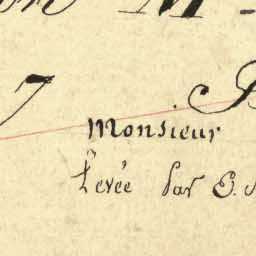 on M
7 B
Monsieur
Levée Par E.